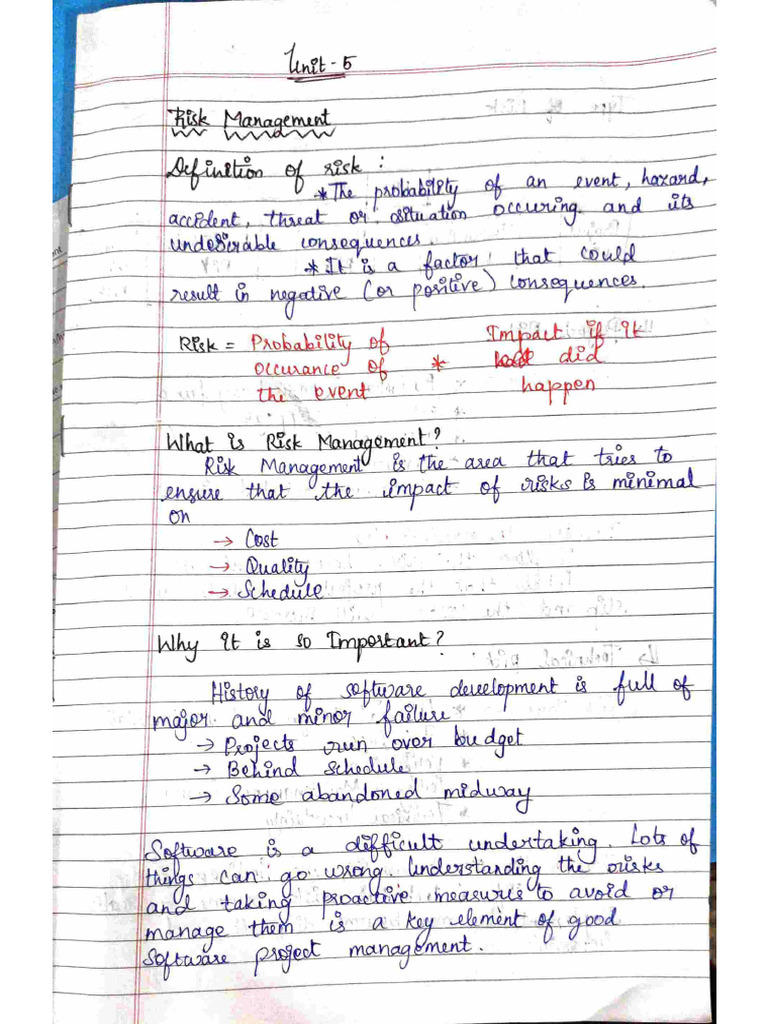 Unit - 5
Risk Management
Definition of risk :
* The probability of an event, hazard,
accident, threat or situation occuring and its
undesirable consequences.
* It is a factor that could
result in negative (or positive) consequences.
Risk = Probability of Impact if it
occurance of * did
the event happen
What is Risk Management?
Risk Management is the area that tries to
ensure that the impact of risks is minimal
on
→ Cost
→ Quality
→ Schedule
Why it is so Important?
History of software development is full of
major and minor failure
→ Projects run over budget
→ Behind schedule
→ Some abandoned midway
Software is a difficult undertaking. Lots of
things can go wrong Understanding the risks
and taking proactive measures to avoid or
manage them is a key element of good
Software project management.